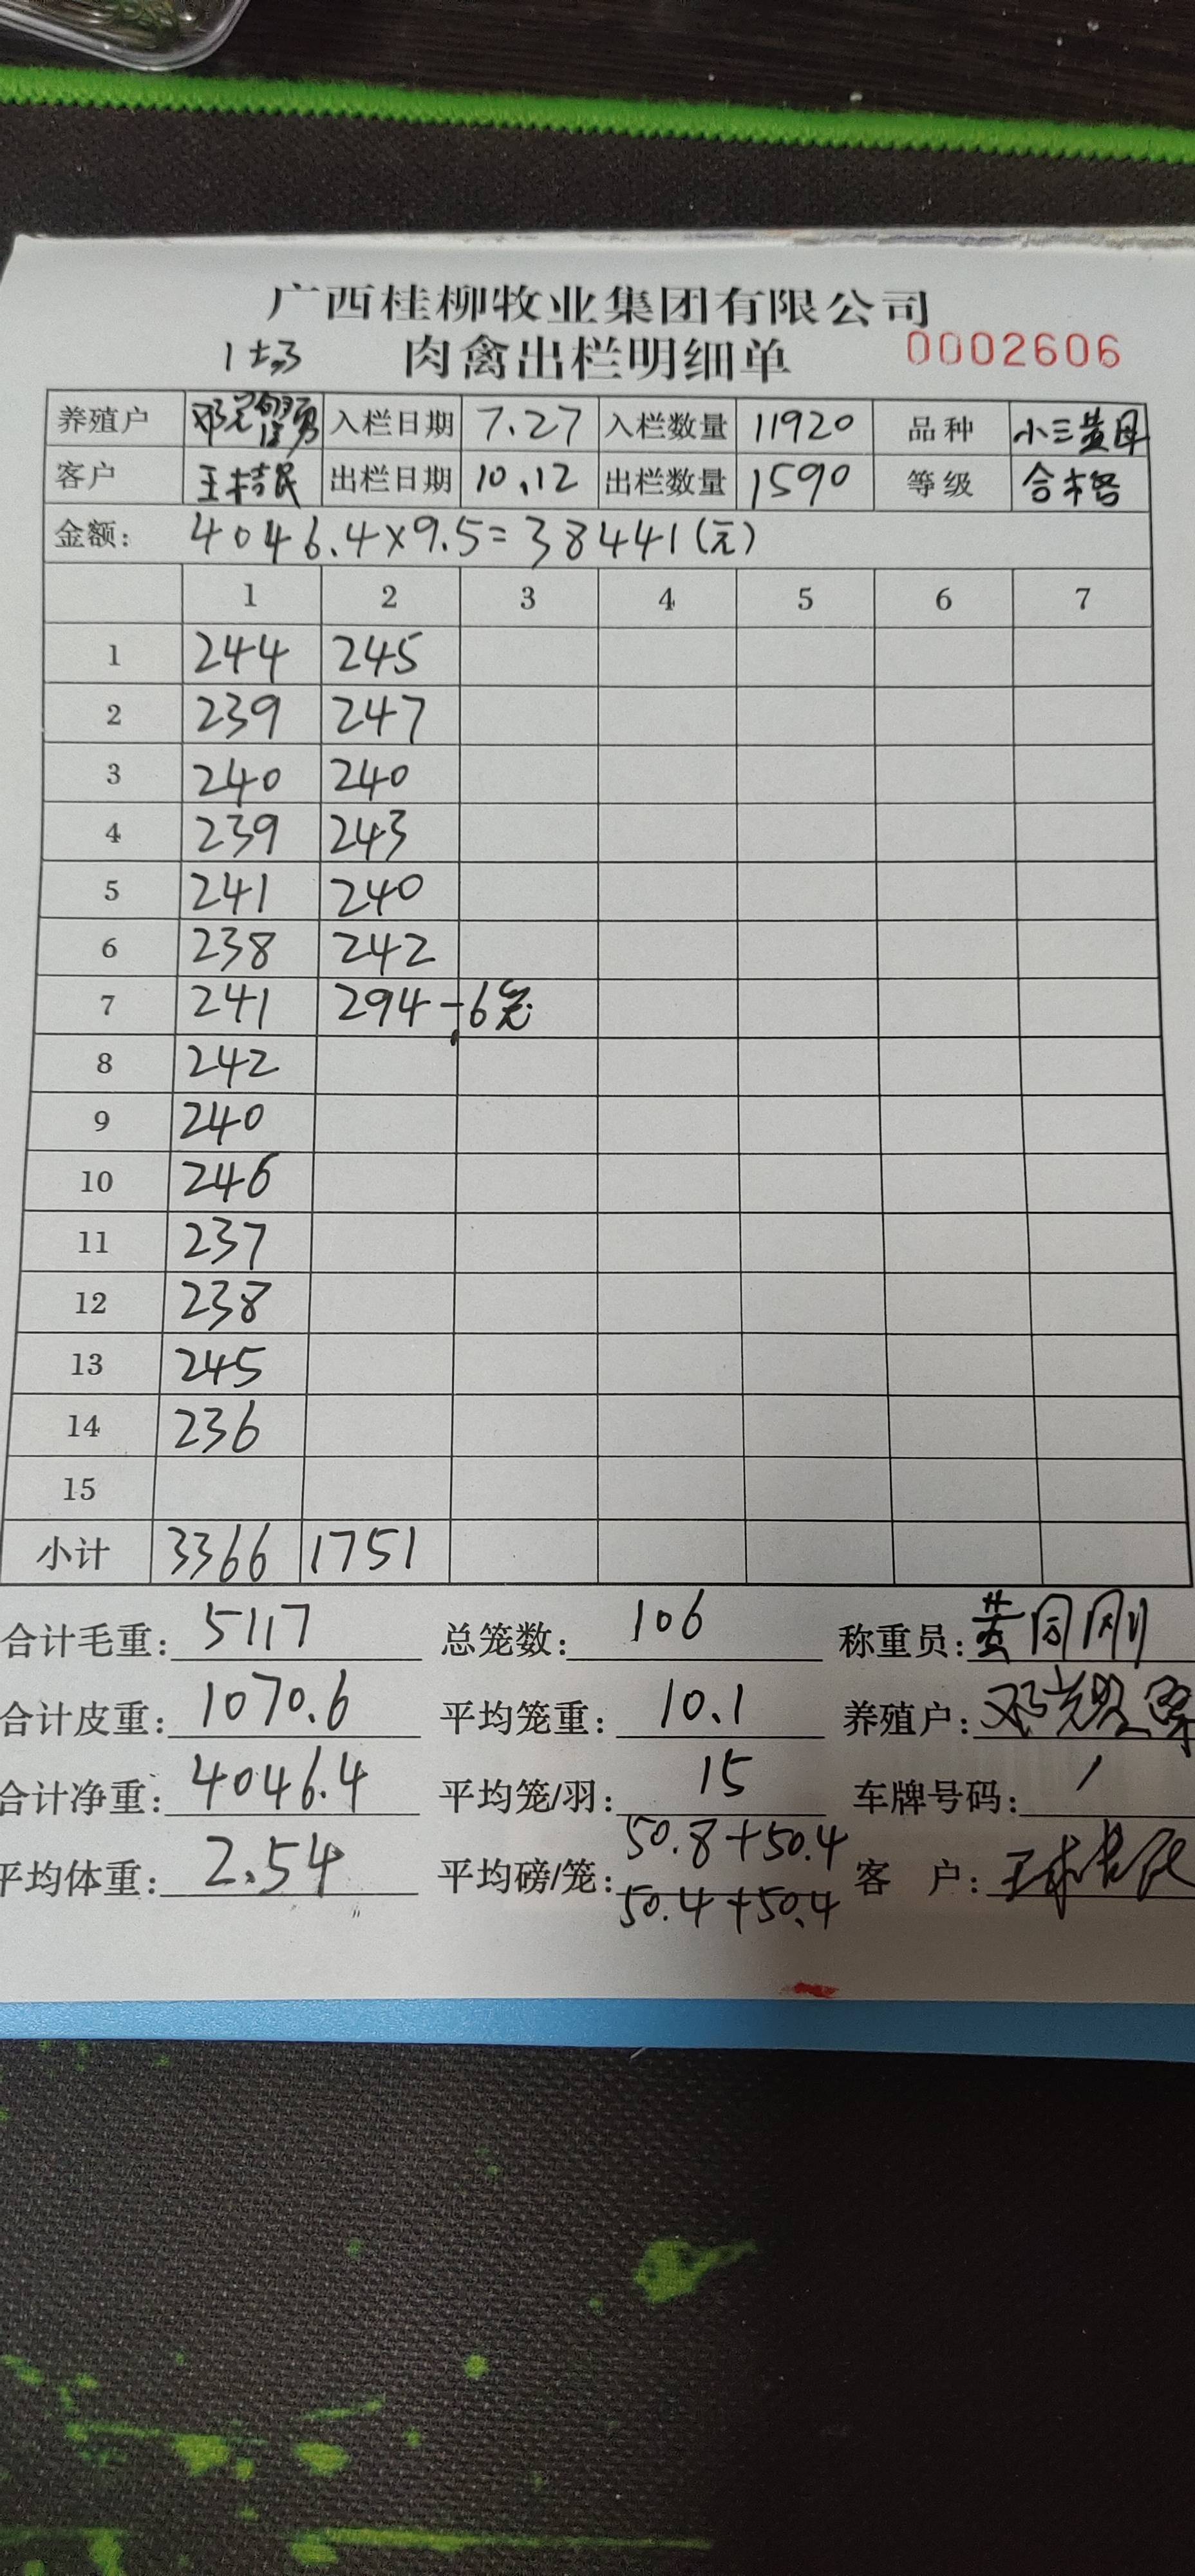 广西桂柳牧业集团有限公司
1场 肉禽出栏明细单 0002606
养殖户 入栏日期 7.27 入栏数量 11920 品种 小三黄母
客户 出栏日期 10.12 出栏数量 1590 等级 合格
金额: 4046.4×9.5=38441(元)
1 2 3 4 5 6 7
1 244 245
2 239 247
3 240 240
4 239 243
5 241 240
6 238 242
7 241 294-6笼
8 242
9 240
10 246
11 237
12 238
13 245
14 236
15
小计 3366 1751
合计毛重: 5117 总笼数: 106 称重员: 黄同刚
合计皮重: 1070.6 平均笼重: 10.1 养殖户:
合计净重: 4046.4 平均笼/羽: 15 车牌号码: /
平均体重: 2.54 平均磅/笼: 50.8+50.4 客 户:
50.4+50.4